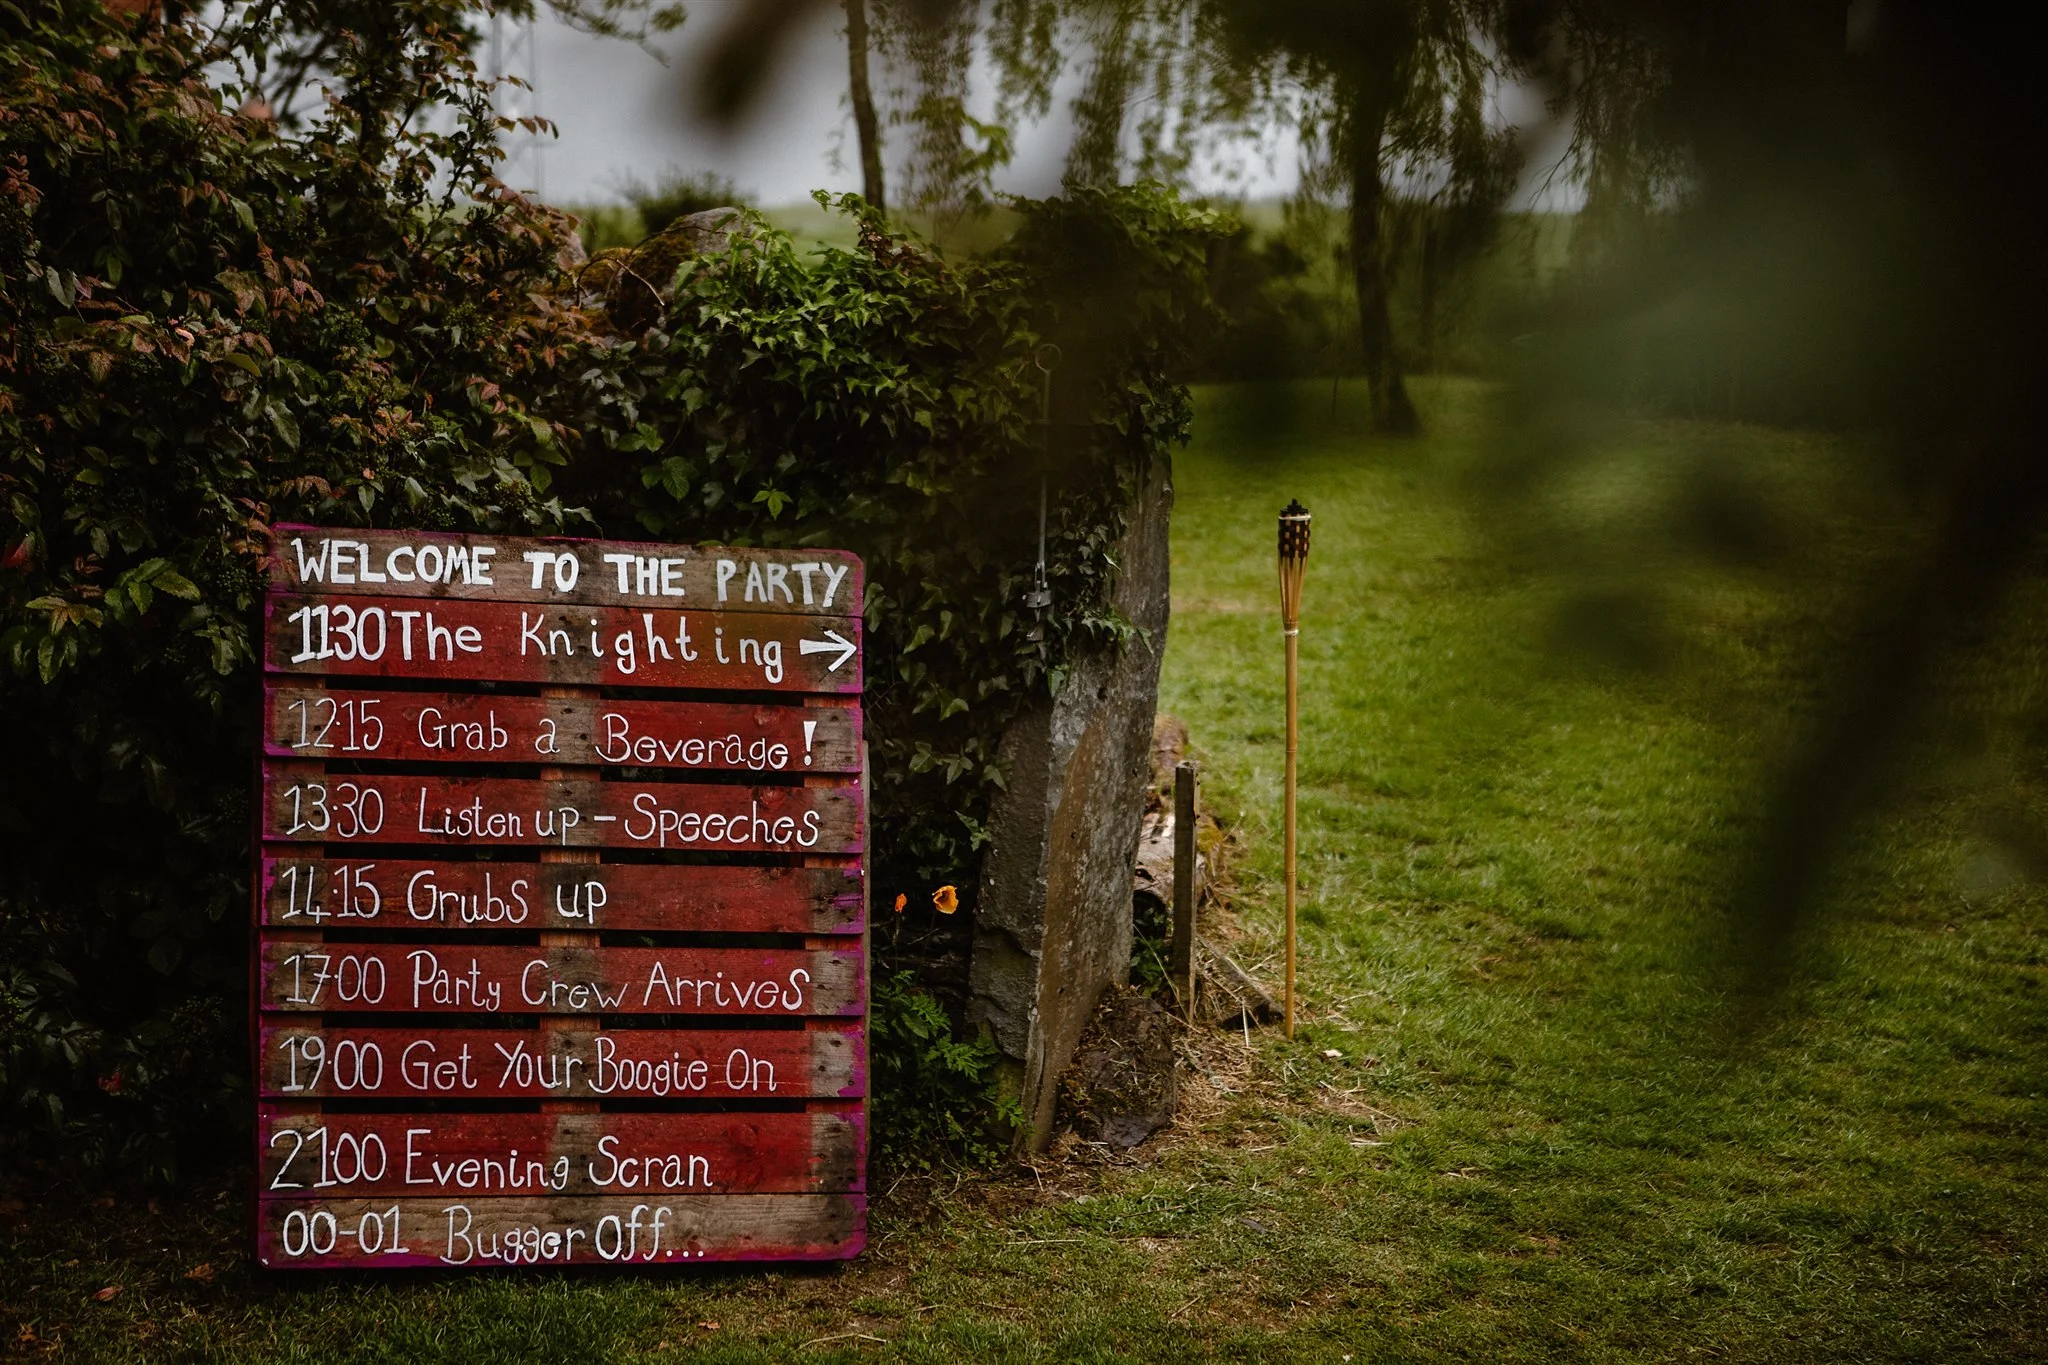 WELCOME TO THE PARTY
11:30 The Knighting →
12:15 Grab a Beverage!
13:30 Listen up - Speeches
14:15 Grubs up
17:00 Party Crew Arrives
19:00 Get Your Boogie On
21:00 Evening Scran
00-01 Bugger Off...